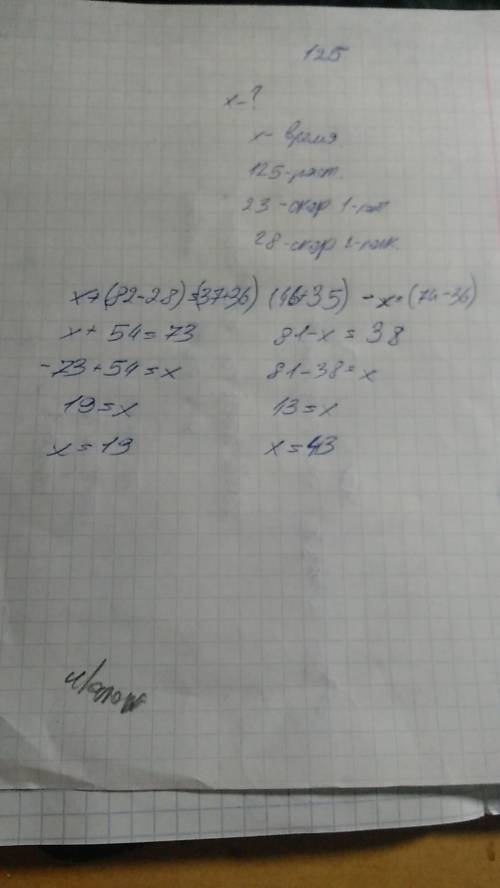 125
x - ?
x - время
125 - раст.
23 - скор 1-
28 - скор 2-
x + (82 - 28) = (37+36) (46+35) - x = (74 - 36)
x + 54 = 73 81 - x = 38
- 73 + 54 = x 81 - 38 = x
19 = x 43 = x
x = 19 x = 43